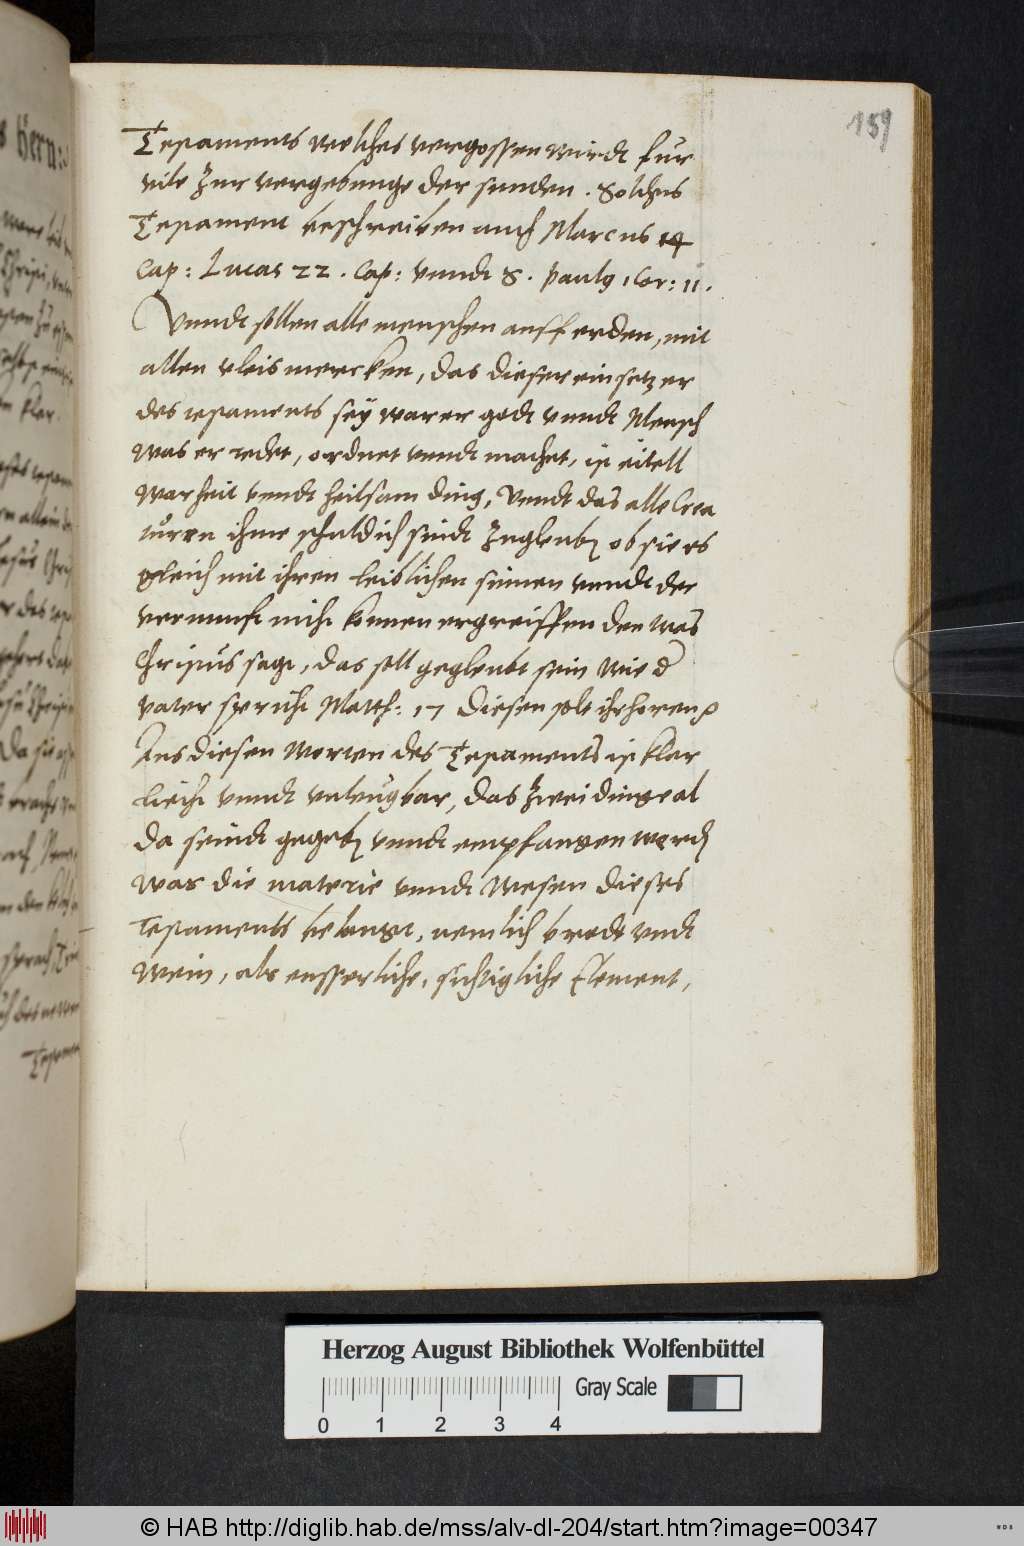 159
Testaments welches vergossen wirdt fur
vile zur vergebunge der sunden. Solchs
Testament beschreiben auch Marcus 14
Cap: Lucas 22. Cap: vnndt S. Paulus 1 Cor: 11.
Vnndt sollen alle menschen auff erden, mit
allen vleis mercken, das dieser einsetzer
des testaments sey warer godt vnndt Mensch
was er redet, ordnet vnndt machet, ist eitell
warheit vnndt heilsam ding, Vnndt das alle Crea
turen ihme schuldich sindt zu glenben ob sie es
gleich mit ihren leiblichen sinnen vnndt der
vernunft nicht konnen ergreiffen den was
Christus sagt, das soll geglenbt sein wie d
vater spricht Matth: 17 Diesen solt ihr horen
Aus diesen worten des Testaments ist klar
liech vnndt vnleugbar, das zwei dinge al
da seindt gegeben vnndt empfangen werden
was die materie vnndt wesen dieses
Testaments belangt, nemlich brodt vndt
wein, als eusserliche, sichtigliche Element,
Herzog August Bibliothek Wolfenbüttel
0 1 2 3 4
Gray Scale
© HAB http://diglib.hab.de/mss/alv-dl-204/start.htm?image=00347